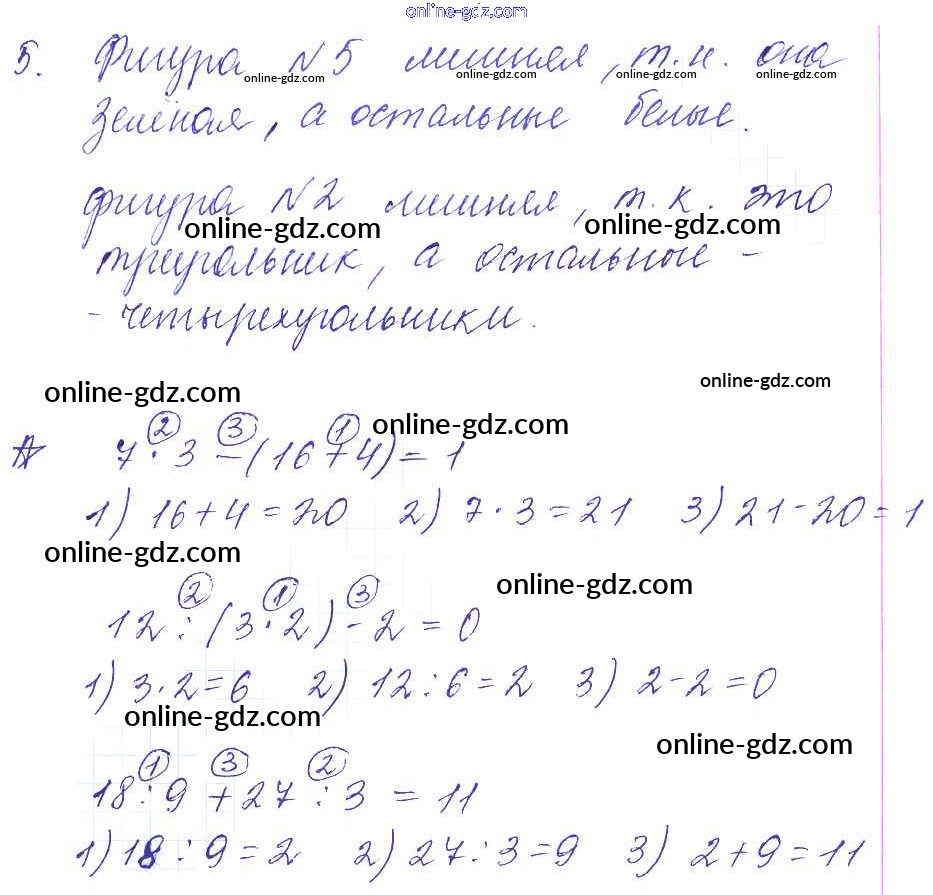 online-gdz.com
5. Фигура №5 лишняя, т.к. она
online-gdz.com online-gdz.com online-gdz.com online-gdz.com
зелёная, а остальные белые.
фигура №2 лишняя, т.к. это
online-gdz.com online-gdz.com
треугольник, а остальные -
- четырехугольники.
online-gdz.com
online-gdz.com
online-gdz.com
② ③ ①
☆ 7 · 3 - (16 + 4) = 1
1) 16 + 4 = 20 2) 7 · 3 = 21 3) 21 - 20 = 1
online-gdz.com
online-gdz.com
② ① ③
12 : (3 · 2) - 2 = 0
1) 3 · 2 = 6 2) 12 : 6 = 2 3) 2 - 2 = 0
online-gdz.com
online-gdz.com
① ③ ②
18 : 9 + 27 : 3 = 11
1) 18 : 9 = 2 2) 27 : 3 = 9 3) 2 + 9 = 11